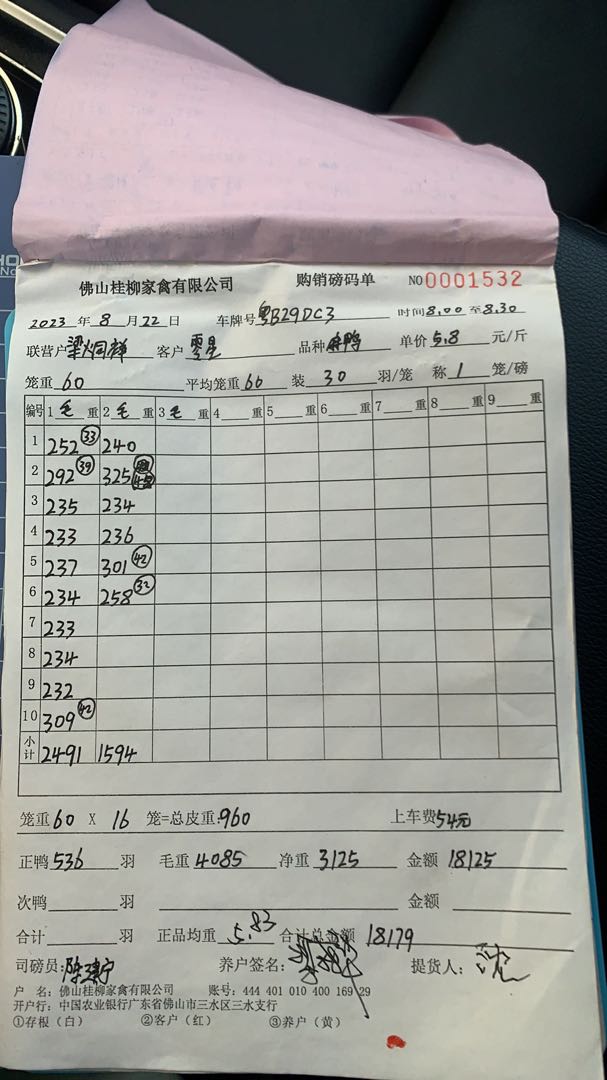 佛山桂柳家禽有限公司 购销磅码单 NO 0001532
2023 年 8 月 22 日 车牌号 粤B29DC3 时间 8.00 至 8.30
联营户 客户 零星 品种 麻鸭 单价 5.8 元/斤
笼重 60 平均笼重 60 装 30 羽/笼 称 1 笼/磅
编号 1 毛 重 2 毛 重 3 毛 重 4 重 5 重 6 重 7 重 8 重 9 重
1 252 33 240
2 292 39 325
3 235 234
4 233 236
5 237 301 42
6 234 258 32
7 233
8 234
9 232
10 309 42
小计 2491 1594
笼重 60 X 16 笼=总皮重: 960 上车费 54元
正鸭 536 羽 毛重 4085 净重 3125 金额 18125
次鸭 羽 金额
合计 羽 正品均重 5.83 合计总金额 18179
司磅员: 养户签名: 提货人:
户 名: 佛山桂柳家禽有限公司 账号: 444 401 010 400 169 29
开户行: 中国农业银行广东省佛山市三水区三水支行
①存根(白) ②客户(红) ③养户(黄)